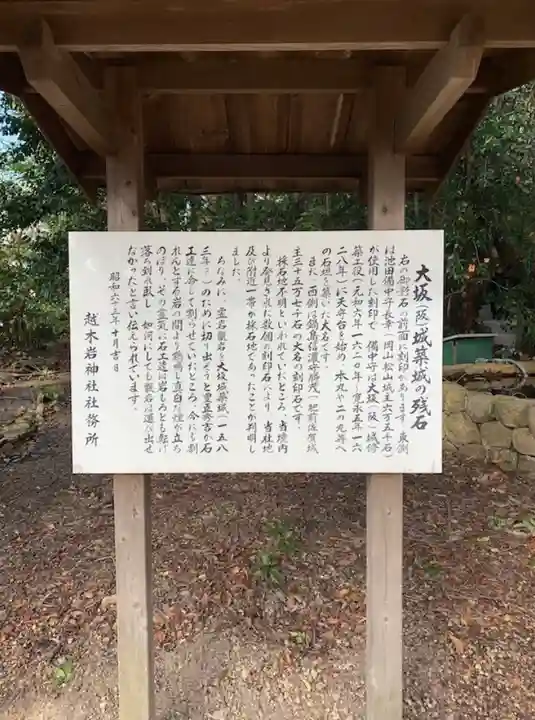 大坂(阪)城築城の残石
右の御影石の前面に刻印があります。東側
は池田備中守長幸(岡山松山城主六万五千石)
が使用した刻印で、備中守は大坂(阪)城修
築工役(元和六年・一六二〇年~寛永五年・一六
二八年)に天守台を始め、本丸や二の丸等へ
の石垣を築いた大名です。
また、西側は鍋島信濃守勝茂(肥前佐賀城
主三十五万七千石)の大名の刻印石です。
採石地不明といわれていたところ、当境内
より発見された数個の刻印石により、当社地
及び附近一帯が採石地であったことが判明し
ました。
ちなみに、霊岩甑岩を大坂城築城(一五八
三年~)のために切り出そうと豊臣秀吉が石
工達に命じて割らせていたところ、今にも割
れんとする岩の間より鶏鳴し真白な煙が立ち
のぼり、その霊気に石工達は岩もろとも転げ
落ち倒れ臥し、如何にしても甑岩は運び出せ
なかったと言い伝えられています。
昭和六十三年十月吉日
越木岩神社社務所